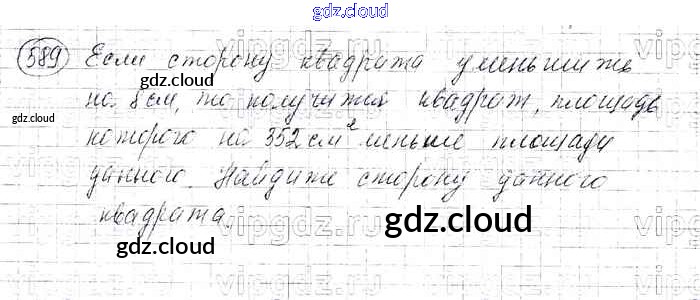 gdz.cloud
589 Если сторону квадрата уменьшить
на 8 см, то получится квадрат, площадь
которого на 352 см² меньше площади
данного. Найдите сторону данного
квадрата.
gdz.cloud
gdz.cloud
gdz.cloud
gdz.cloud
gdz.cloud
gdz.cloud
vipgdz.ru
vipgdz.ru
vipgdz.ru